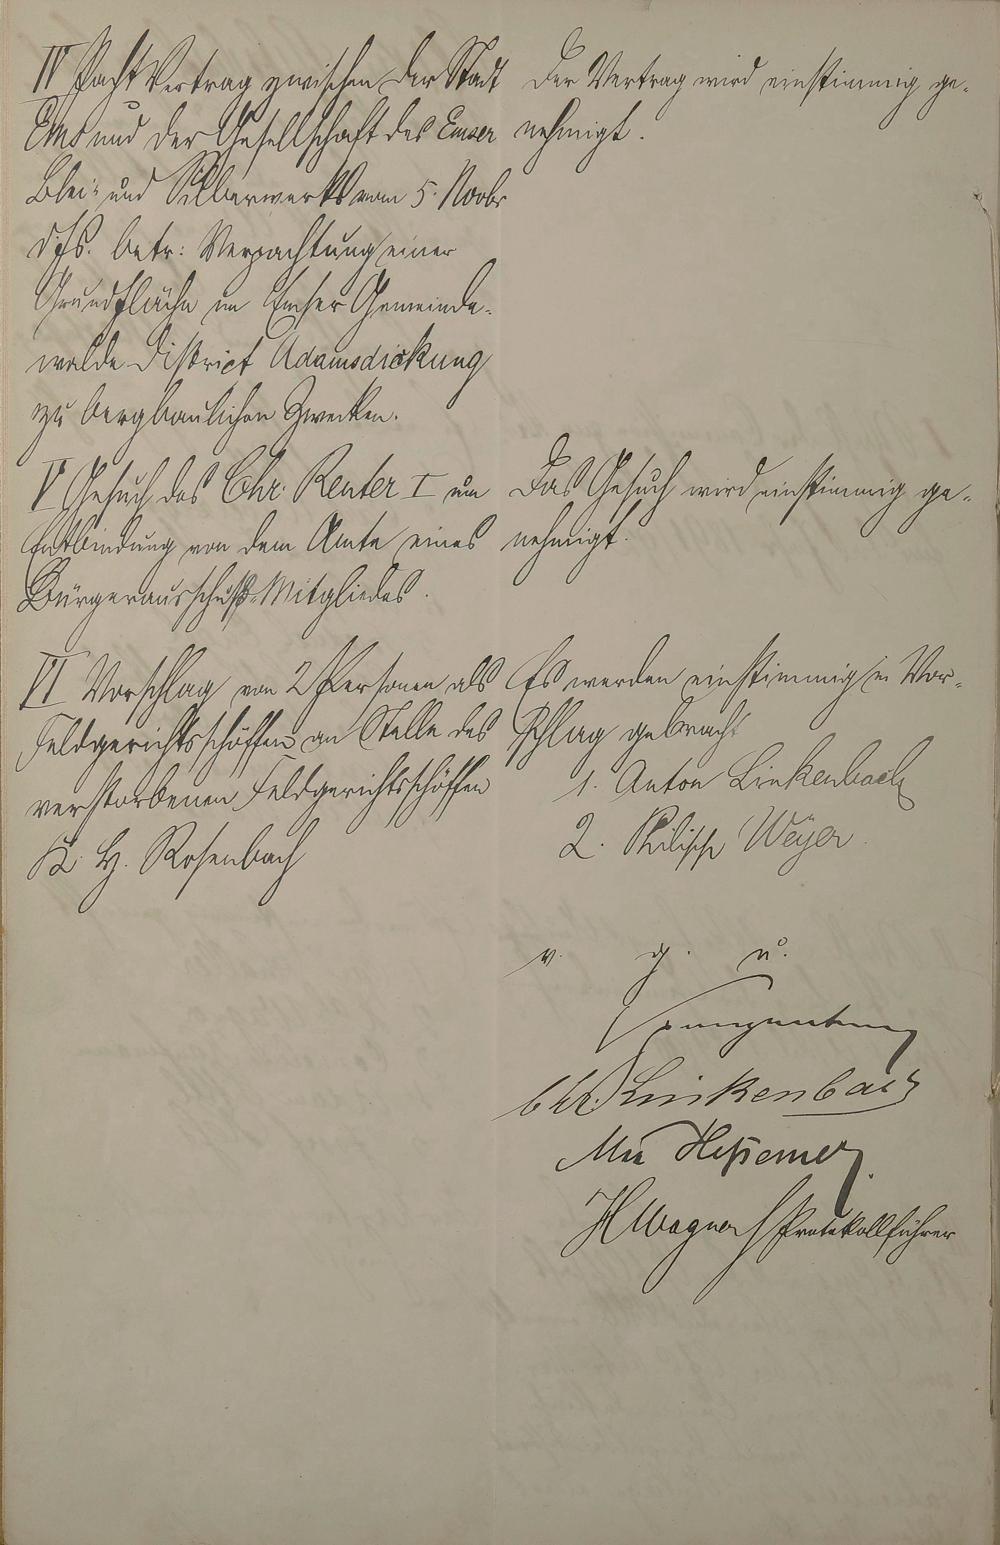 IV Pacht Vertrag zwischen der Stadt
Ems und der Gesellschaft des Emser
Blei- und Silberwerks vom 5. Novbr
dJs. betr: Verpachtung einer
Grundfläche im Emser Gemeinde-
walde District Adamsdickung
zu bergbaulichen Zwecken.
Der Vertrag wird einstimmig ge-
nehmigt.
V Gesuch des Chr. Reuter I um
Entbindung von dem Amte eines
Bürgerausschuß-Mitgliedes.
Das Gesuch wird einstimmig ge-
nehmigt.
VI Vorschlag von 2 Personen als
Feldgerichtsschöffen an Stelle des
verstorbenen Feldgerichtsschöffen
K. H. Rosenbach
Es werden einstimmig in Vor-
schlag gebracht
1. Anton Linkenbach
2. Philipp Weyer.
v. g. u.
Chr. Linkenbach
Hessemer
H Wagner Protokollführer